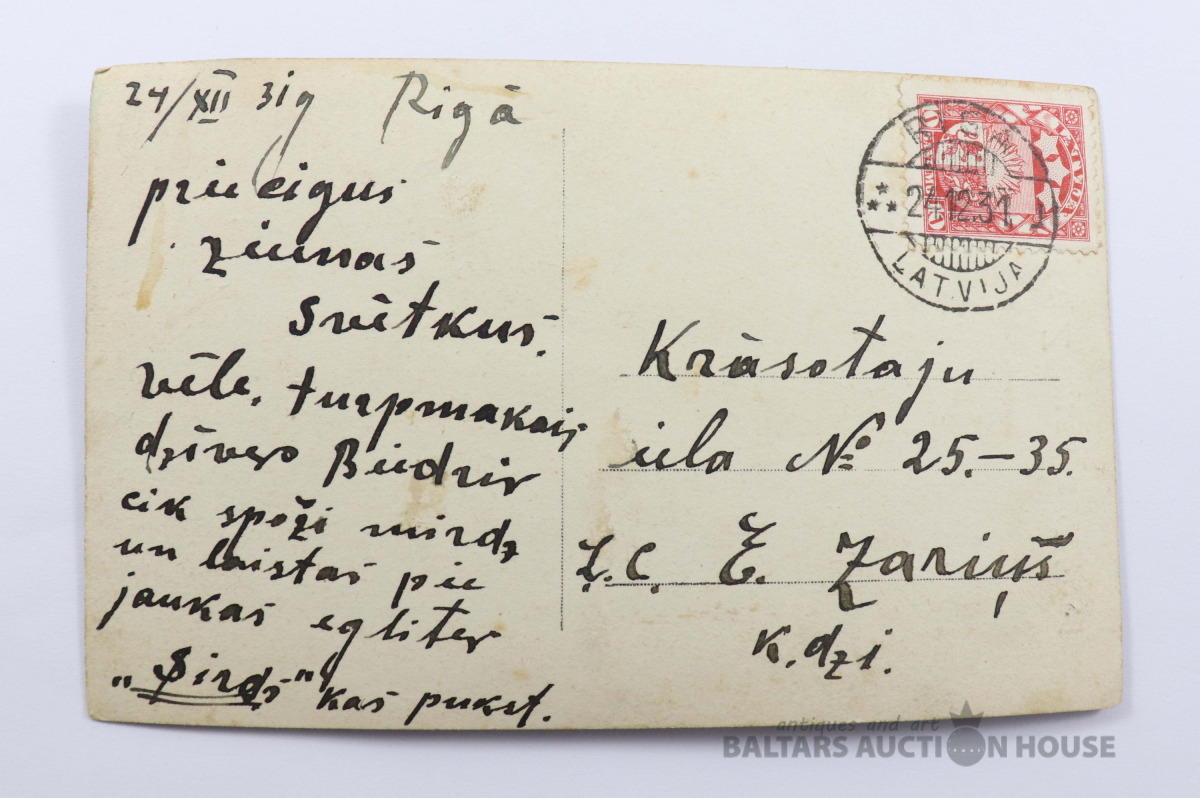 24/XII 31g Rigā
priecigus
ziemas
svētkus.
vēle, turpmakais
dzīves Biedris
cik spoži mirdz
un laistas pie
jaukas eglites
„Sirds" kas pukst.
LATVIJA
24.12.31
LATVIJA
Krāsotaju
iela № 25.–35.
Z.C. E. Zariņš
k.dzi.
antiques and art
BALTARS AUCTION HOUSE